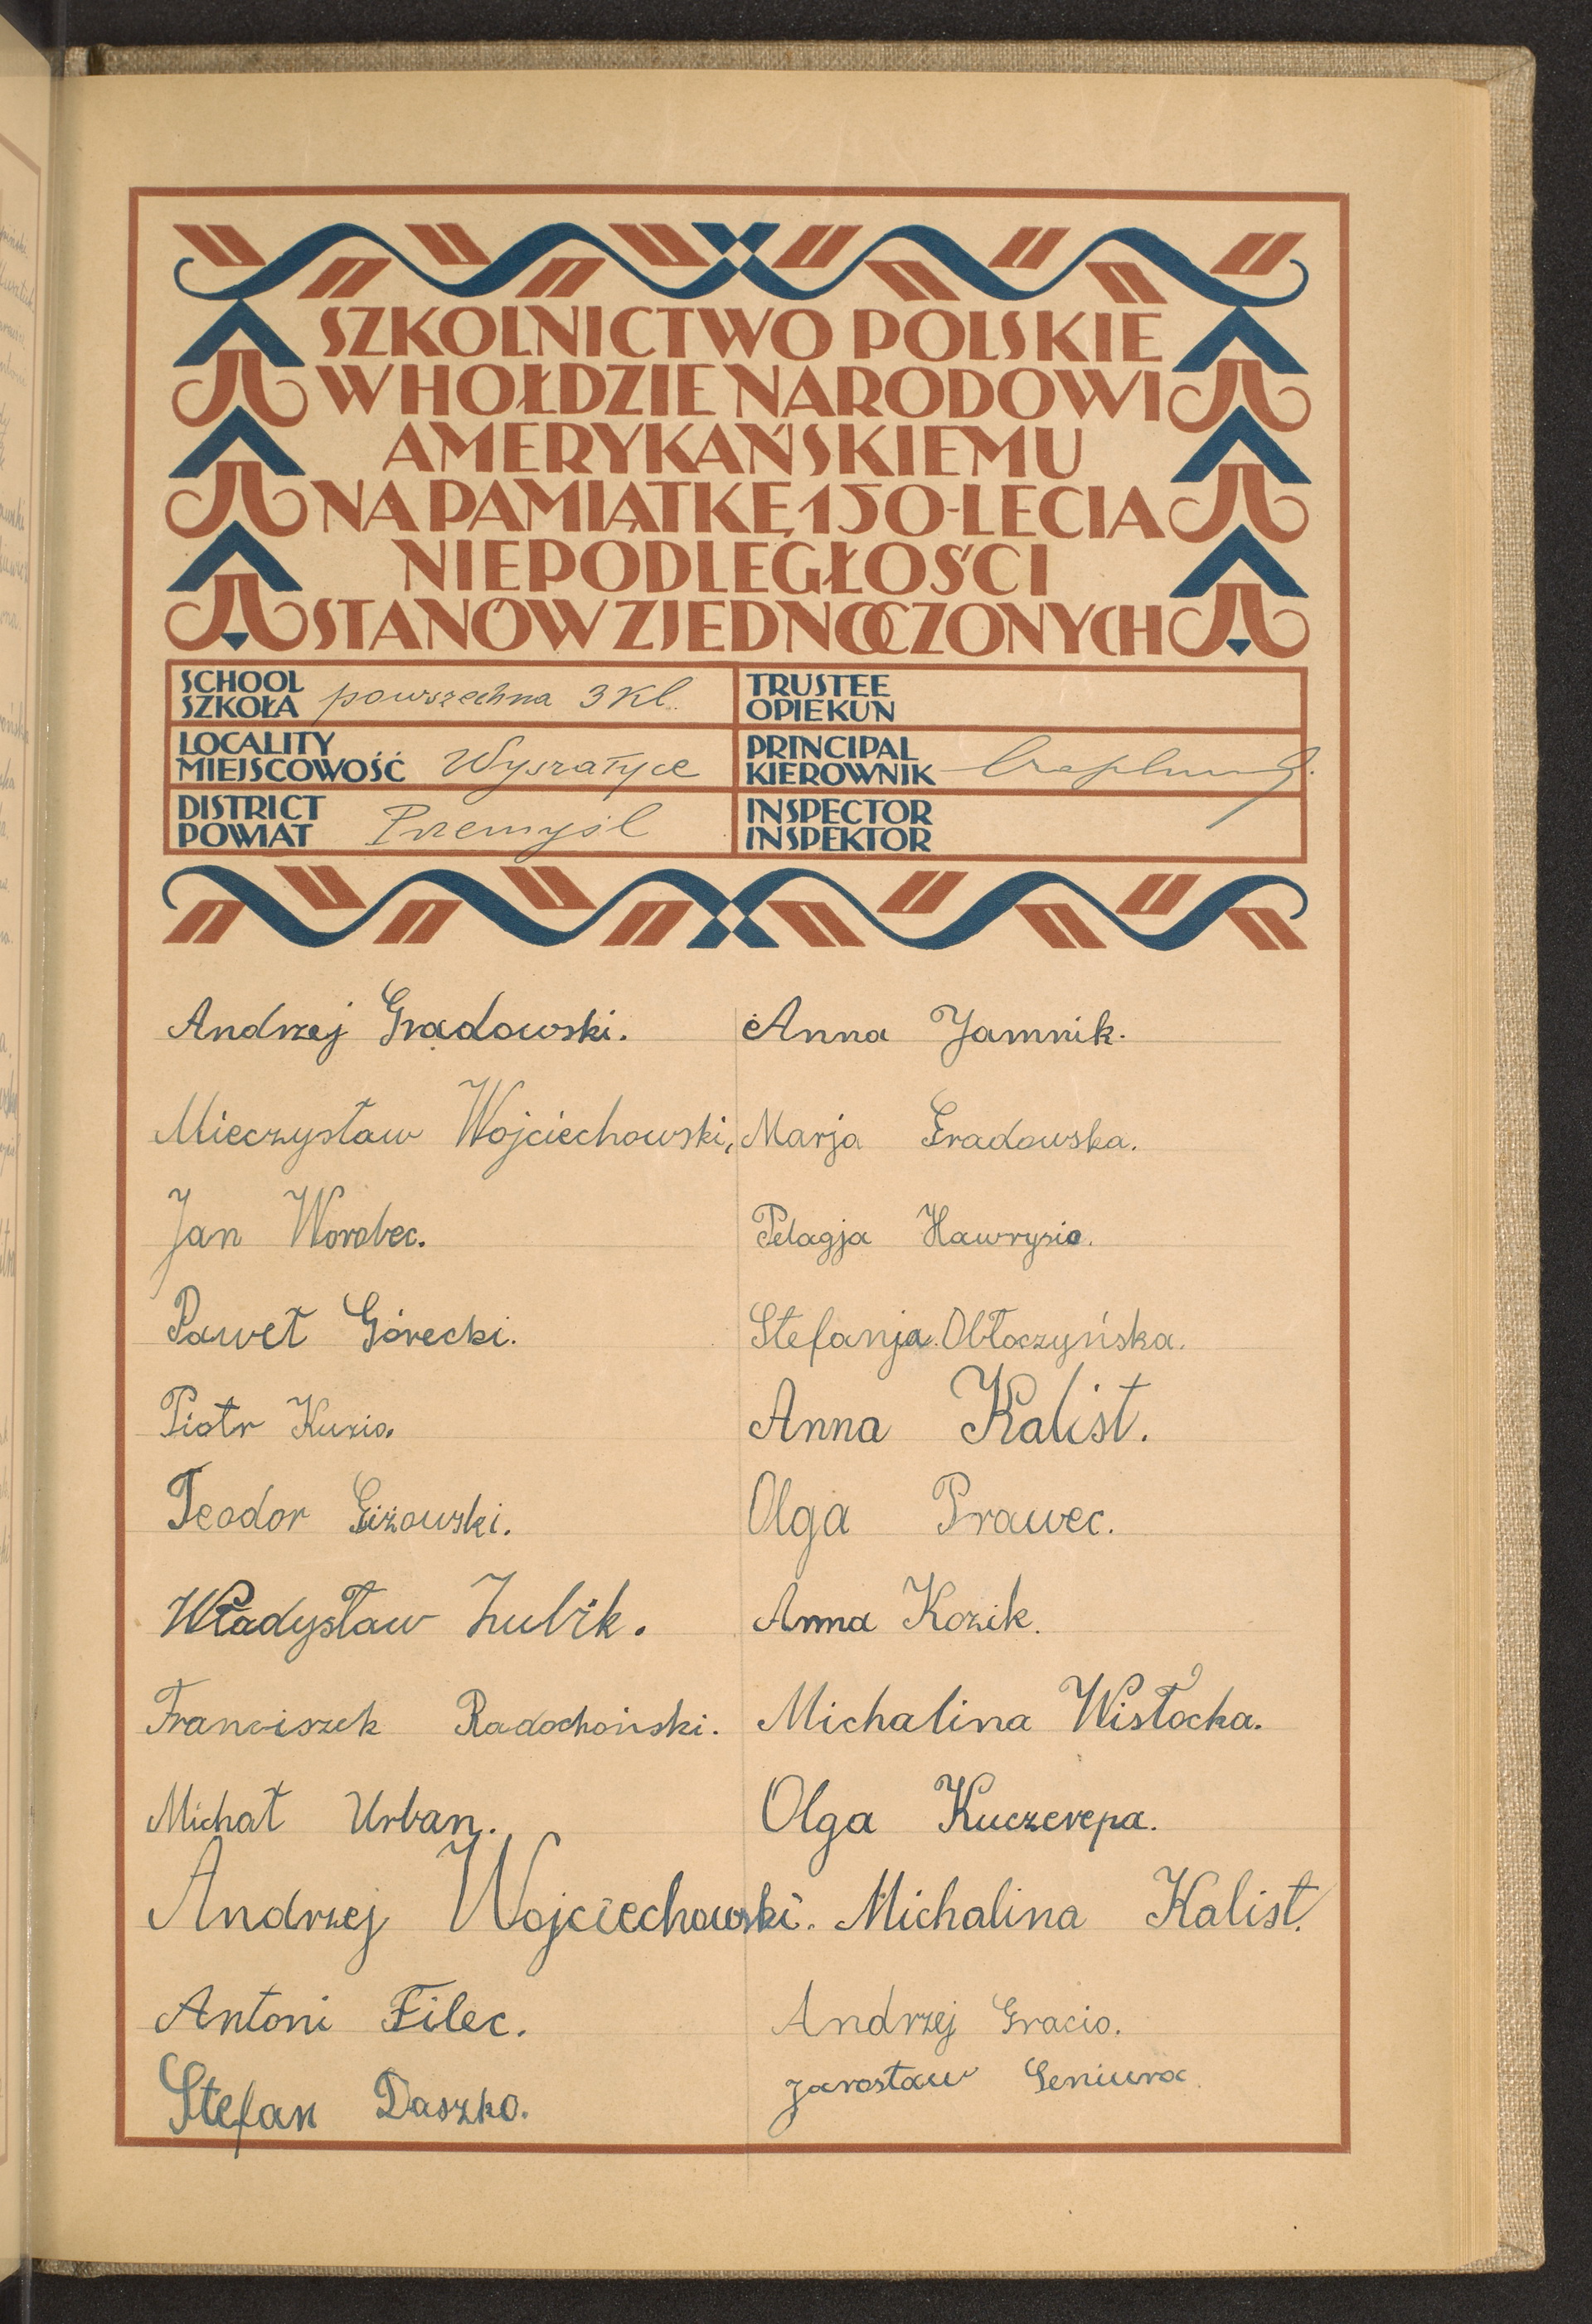 SZKOLNICTWO POLSKIE
W HOŁDZIE NARODOWI
AMERYKAŃSKIEMU
NA PAMIĄTKĘ 150-LECIA
NIEPODLEGŁOŚCI
STANÓW ZJEDNOCZONYCH
SCHOOL
SZKOŁA powszechna 3 kl.
LOCALITY
MIEJSCOWOŚĆ Wyszatyce
DISTRICT
POWIAT Przemyśl
TRUSTEE
OPIEKUN
PRINCIPAL
KIEROWNIK
INSPECTOR
INSPEKTOR
Andrzej Grądowski.
Mieczysław Wojciechowski,
Jan Worobec.
Paweł Górecki.
Piotr Kuzio.
Teodor Giżowski.
Władysław Zubik.
Franciszek Radochoński.
Michał Urban.
Andrzej Wojciechowski.
Antoni Filec.
Stefan Daszko.
Anna Jamnik.
Marja Gradowska.
Pelagja Hawrysio.
Stefanja Obłoczyńska.
Anna Kalist.
Olga Prawec.
Anna Kozik.
Michalina Wisłocka.
Olga Kuczerepa.
Michalina Kalist.
Andrzej Gracio.
Jarosław Seniura